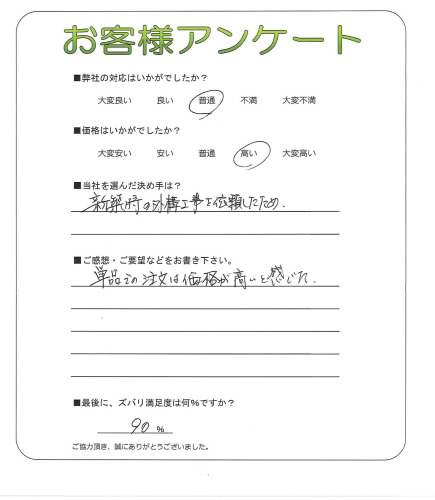 お客様アンケート
■弊社の対応はいかがでしたか？
大変良い 良い 普通 不満 大変不満
■価格はいかがでしたか？
大変安い 安い 普通 高い 大変高い
■当社を選んだ決め手は？
新築時の外構工事を依頼したため.
■ご感想・ご要望などをお書き下さい。
単品での注文は価格が高いと感じた.
■最後に、ズバリ満足度は何%ですか？
90 %
ご協力頂き、誠にありがとうございました。